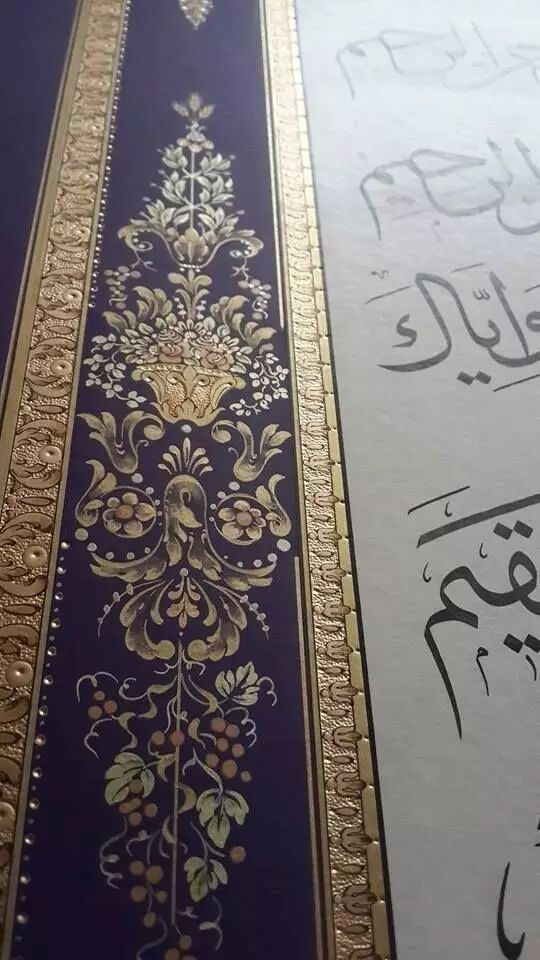 الرحيم
الرحيم
وَإِيَّاكَ
قِيمَ